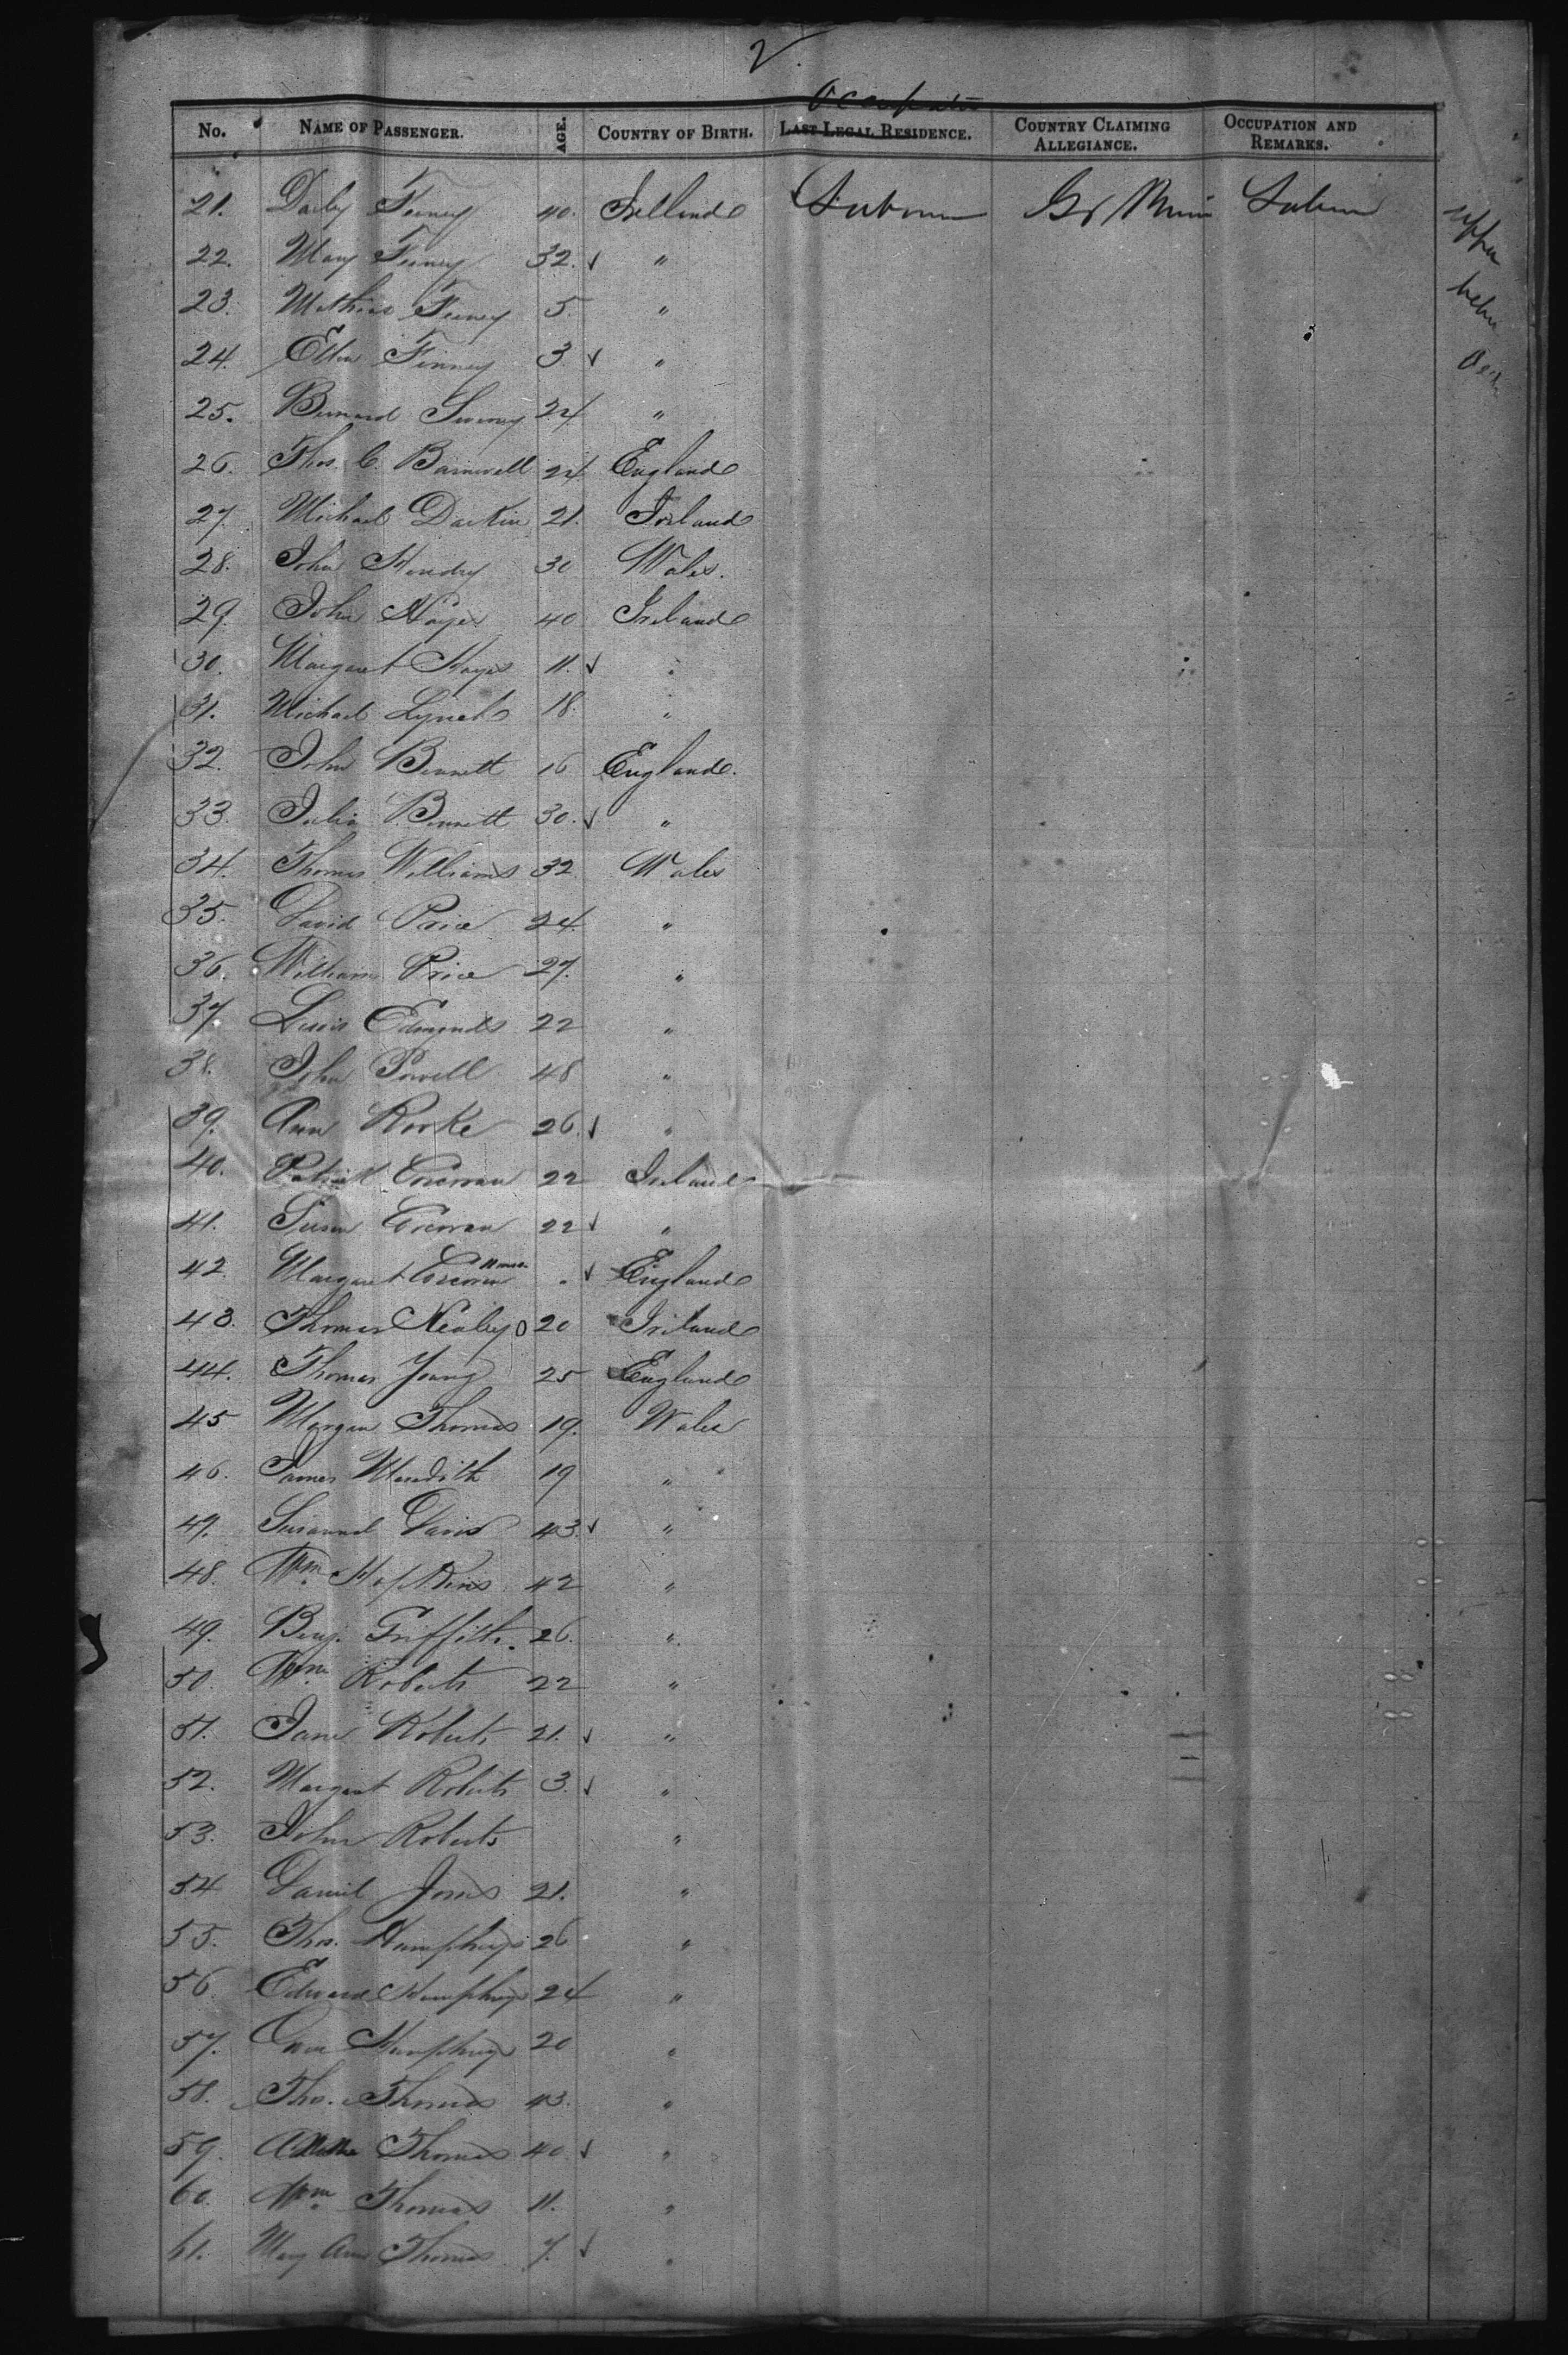 2.
Occupation
No. NAME OF PASSENGER. AGE. COUNTRY OF BIRTH. LAST LEGAL RESIDENCE. COUNTRY CLAIMING ALLEGIANCE. OCCUPATION AND REMARKS.
21. Darby Feeney 40. Irelland
22. Mary Feeney 32. ✓ "
23. Mathias Feeney 5 "
24. Ellen Finney 3. ✓ "
25. Bernard 24 "
26. Thos. C. Barnwell 24 England
27. Michael Darkin 21. Ireland
28. John Hendry 30 Wales.
29. John Hayes 40 Ireland
30. Margaret Hayes 11. ✓ "
31. Michael Lynch 18. "
32. John Bennett 16 England.
33. Julia Bennett 30. ✓ "
34. Thomas Williams 32 Wales
35. David Price 24 "
36. William Price 27. "
37. Lewis Edmunds 22 "
38. John Powell 48 "
39. Ann Rorke 26. ✓ "
40. Patrick Corcoran 22 Ireland
41. Susan Corcoran 22 ✓ "
42. Margaret Corcoran ✓ England
43. Thomas Nealey 20 Ireland
44. Thomas Young 25 England
45 Morgan Thomas 19. Wales
46. James Meredith 19 "
47. Susannah Davis 43. ✓ "
48. Wm. Hopkins 42 "
49. Benj. Griffith. 26. "
50. Wm. Roberts 22 "
51. Jane Roberts 21. ✓ "
52. Margaret Roberts 3. ✓ "
53. John Roberts "
54 Daniel Jones 21. "
55. Thos. Humphreys 26 "
56. Edward Humphreys 24 "
57. Humphreys 20 "
58. Tho. Thomas 43. "
59. Thomas 40 ✓ "
60. Wm. Thomas 11. "
61. Mary Ann Thomas 7. ✓ "